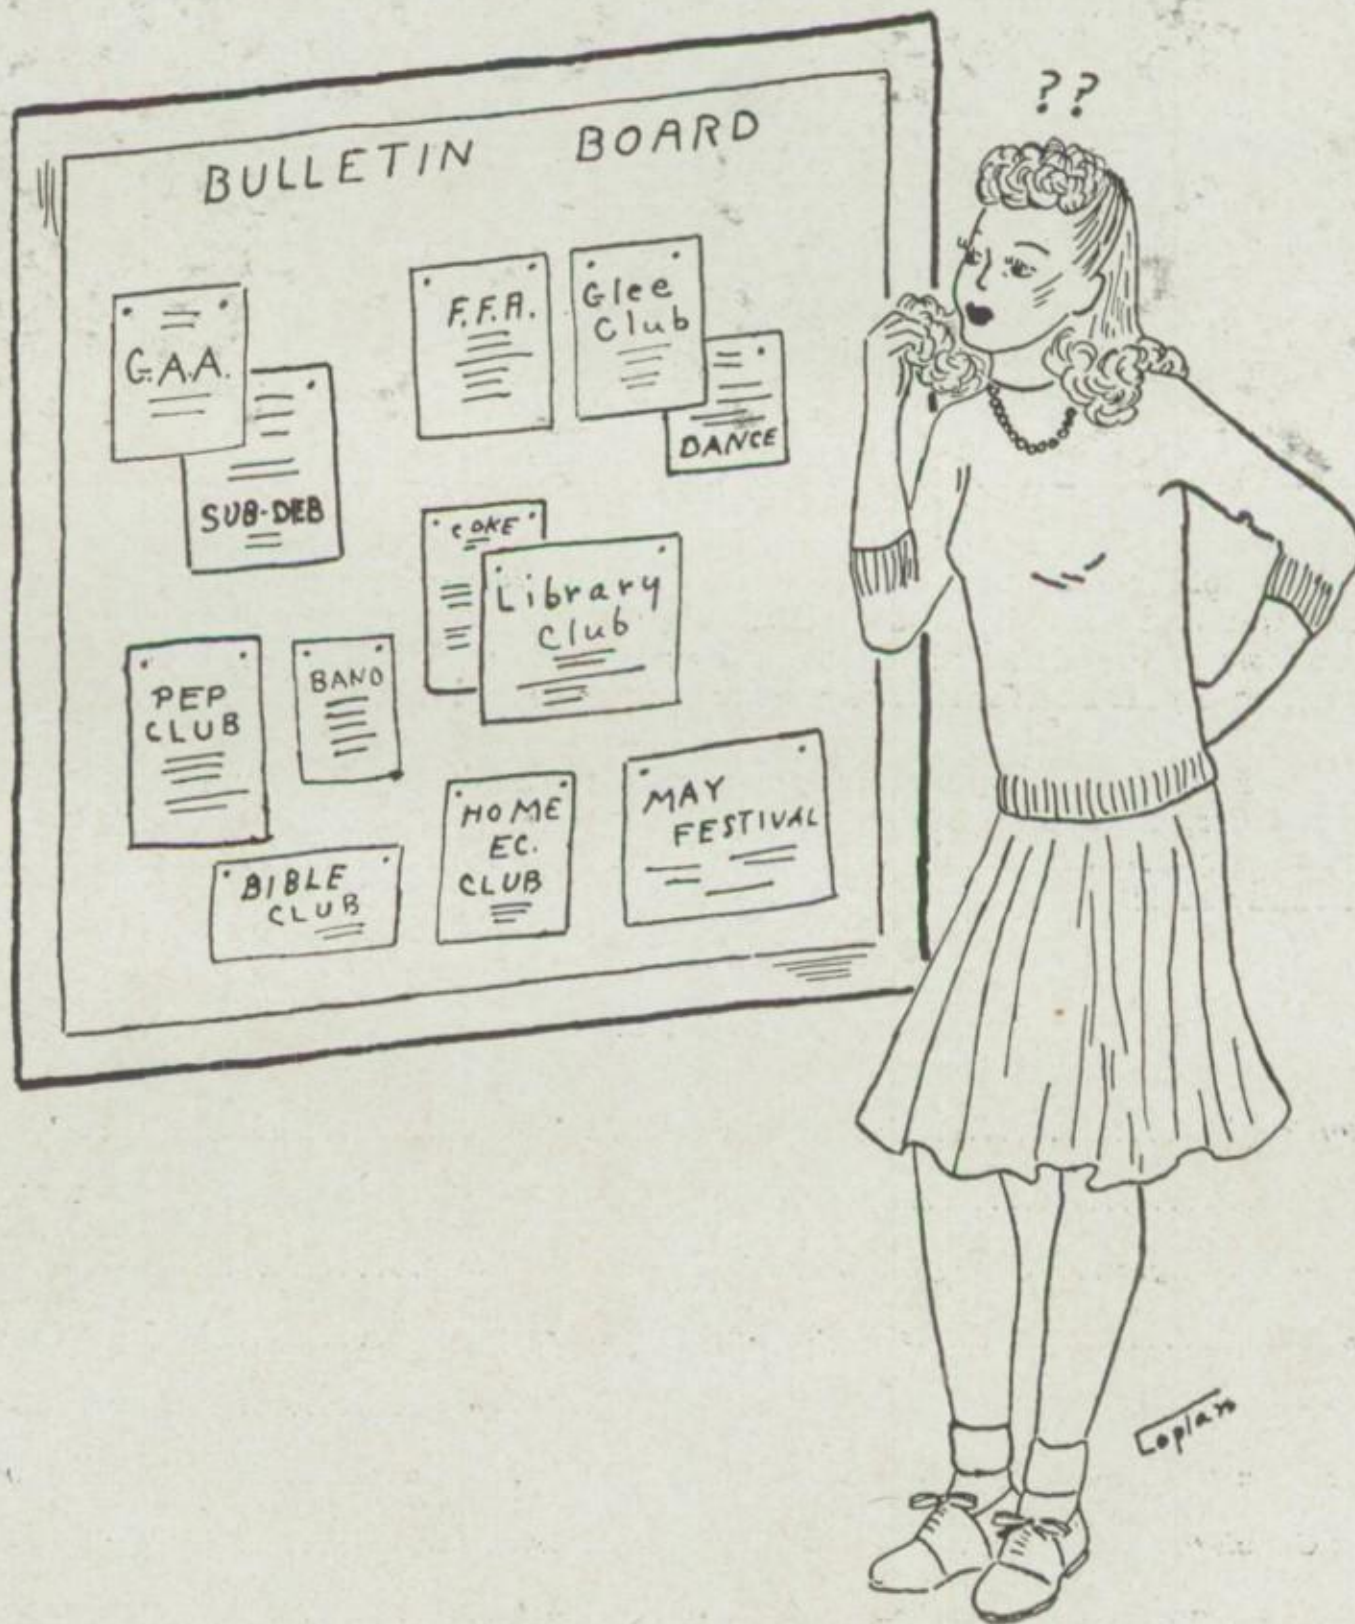 ??
BULLETIN BOARD
G.A.A.
SUB-DEB
F.F.A.
Glee
Club
DANCE
COKE
Library
Club
PEP
CLUB
BAND
BIBLE
CLUB
HOME
EC.
CLUB
MAY
FESTIVAL